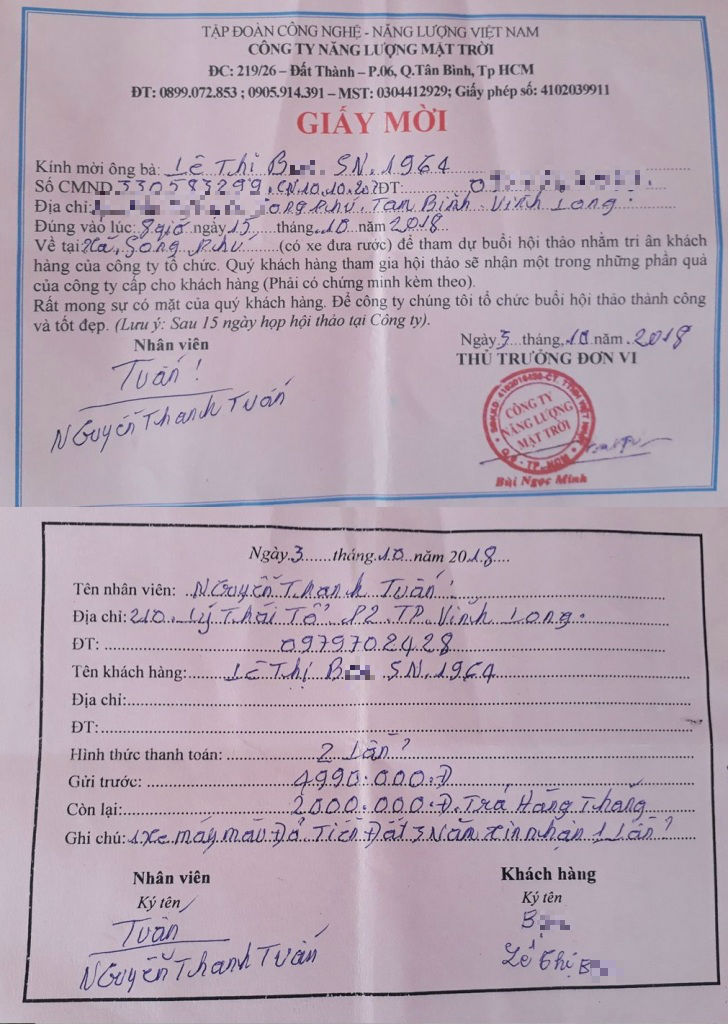 TẬP ĐOÀN CÔNG NGHỆ - NĂNG LƯỢNG VIỆT NAM
CÔNG TY NĂNG LƯỢNG MẶT TRỜI
ĐC: 219/26 – Đất Thành – P.06, Q.Tân Bình, Tp HCM
ĐT: 0899.072.853 ; 0905.914.391 – MST: 0304412929; Giấy phép số: 4102039911
GIẤY MỜI
Kính mời ông bà: Lê Thị B SN.1964
Số CMND ĐT:
Địa chỉ: Tam Bình. Vĩnh Long.
Đúng vào lúc: 8 giờ ngày 15 tháng.10 năm 2018
Về tại: Xã, Song Phú (có xe đưa rước) để tham dự buổi hội thảo nhằm tri ân khách
hàng của công ty tổ chức. Quý khách hàng tham gia hội thảo sẽ nhận một trong những phần quà
của công ty cấp cho khách hàng (Phải có chứng minh kèm theo).
Rất mong sự có mặt của quý khách hàng. Để công ty chúng tôi tổ chức buổi hội thảo thành công
và tốt đẹp. (Lưu ý: Sau 15 ngày họp hội thảo tại Công ty).
Ngày 3 tháng 10 năm 2018
Nhân viên
THỦ TRƯỞNG ĐƠN VI
Tuấn !
Nguyễn Thanh Tuấn
CÔNG TY
NĂNG LƯỢNG
MẶT TRỜI
Bùi Ngọc Minh
Ngày 3 tháng 10 năm 2018
Tên nhân viên: Nguyễn Thanh Tuấn !
Địa chỉ: 210. Lý Thái Tổ P2. TP. Vĩnh Long.
ĐT: 0979702428
Tên khách hàng: Lê Thị B SN.1964
Địa chỉ:
ĐT:
Hình thức thanh toán: 2 lần ?
Gửi trước: 4990.000.Đ
Còn lại: 2000.000.Đ. Trả Hàng Tháng
Ghi chú: 1 xe máy màu Đỏ. Tiền Đất 3 Năm xin nhận 1 lần ?
Nhân viên
Khách hàng
Ký tên
Ký tên
Tuấn
B
Nguyễn Thanh Tuấn
Lê Thị B